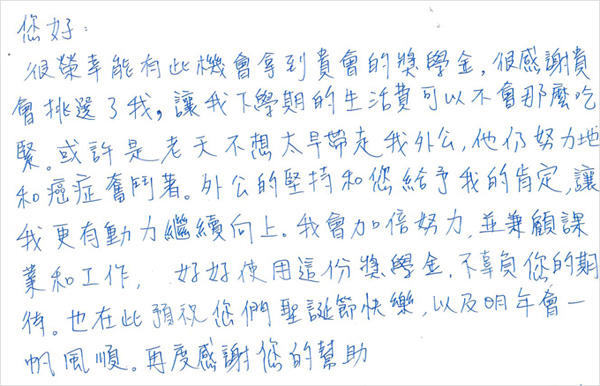 您好:
很榮幸能有此機會拿到貴會的獎學金,很感謝貴
會挑選了我,讓我下學期的生活費可以不會那麼吃
緊。或許是老天不想太早帶走我外公,他仍努力地
和癌症奮鬥著。外公的堅持和您給予我的肯定,讓
我更有動力繼續向上。我會加倍努力,並兼顧課
業和工作, 好好使用這份獎學金,不辜負您的期
待。也在此預祝您們聖誕節快樂,以及明年會一
帆風順。再度感謝您的幫助